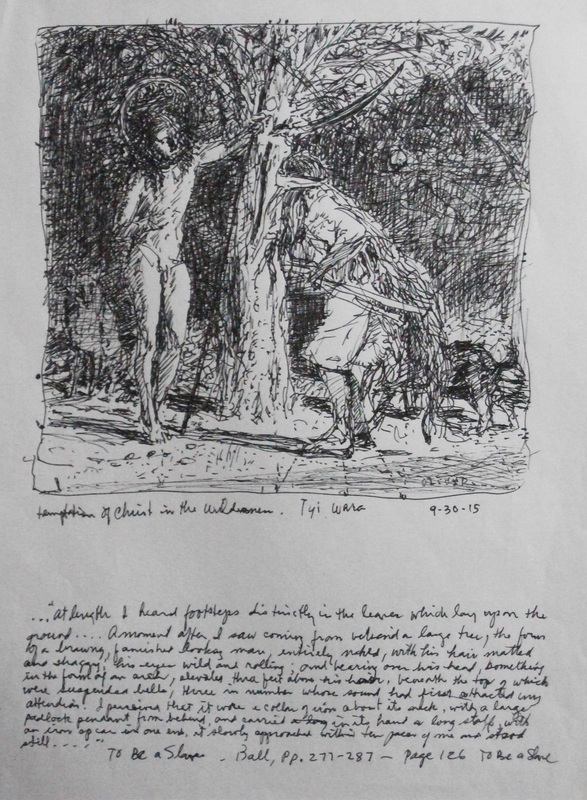 temptation of Christ in the Wilderness. Tyi Wara 9-30-15
..."at length I heard footsteps distinctly in the leaves which lay upon the
ground.... A moment after I saw coming from behind a large tree, the form
of a brawny, famished looking man, entirely naked, with his hair matted
and shaggy, his eyes wild and rolling; and bearing over his head, something
in the form of an arch, elevated three feet above his hair, beneath the top of which
were suspended bells, three in number whose sound had first attracted my
attention. I perceived that it wore a collar of iron about its neck, with a large
padlock pendant from behind, and carried in its hand a long staff, with
an iron spear in one end, it slowly approached within ten paces of me and stood
still...."
To Be a Slave. Ball, Pp. 277-287 — Page 126 To Be a Slave